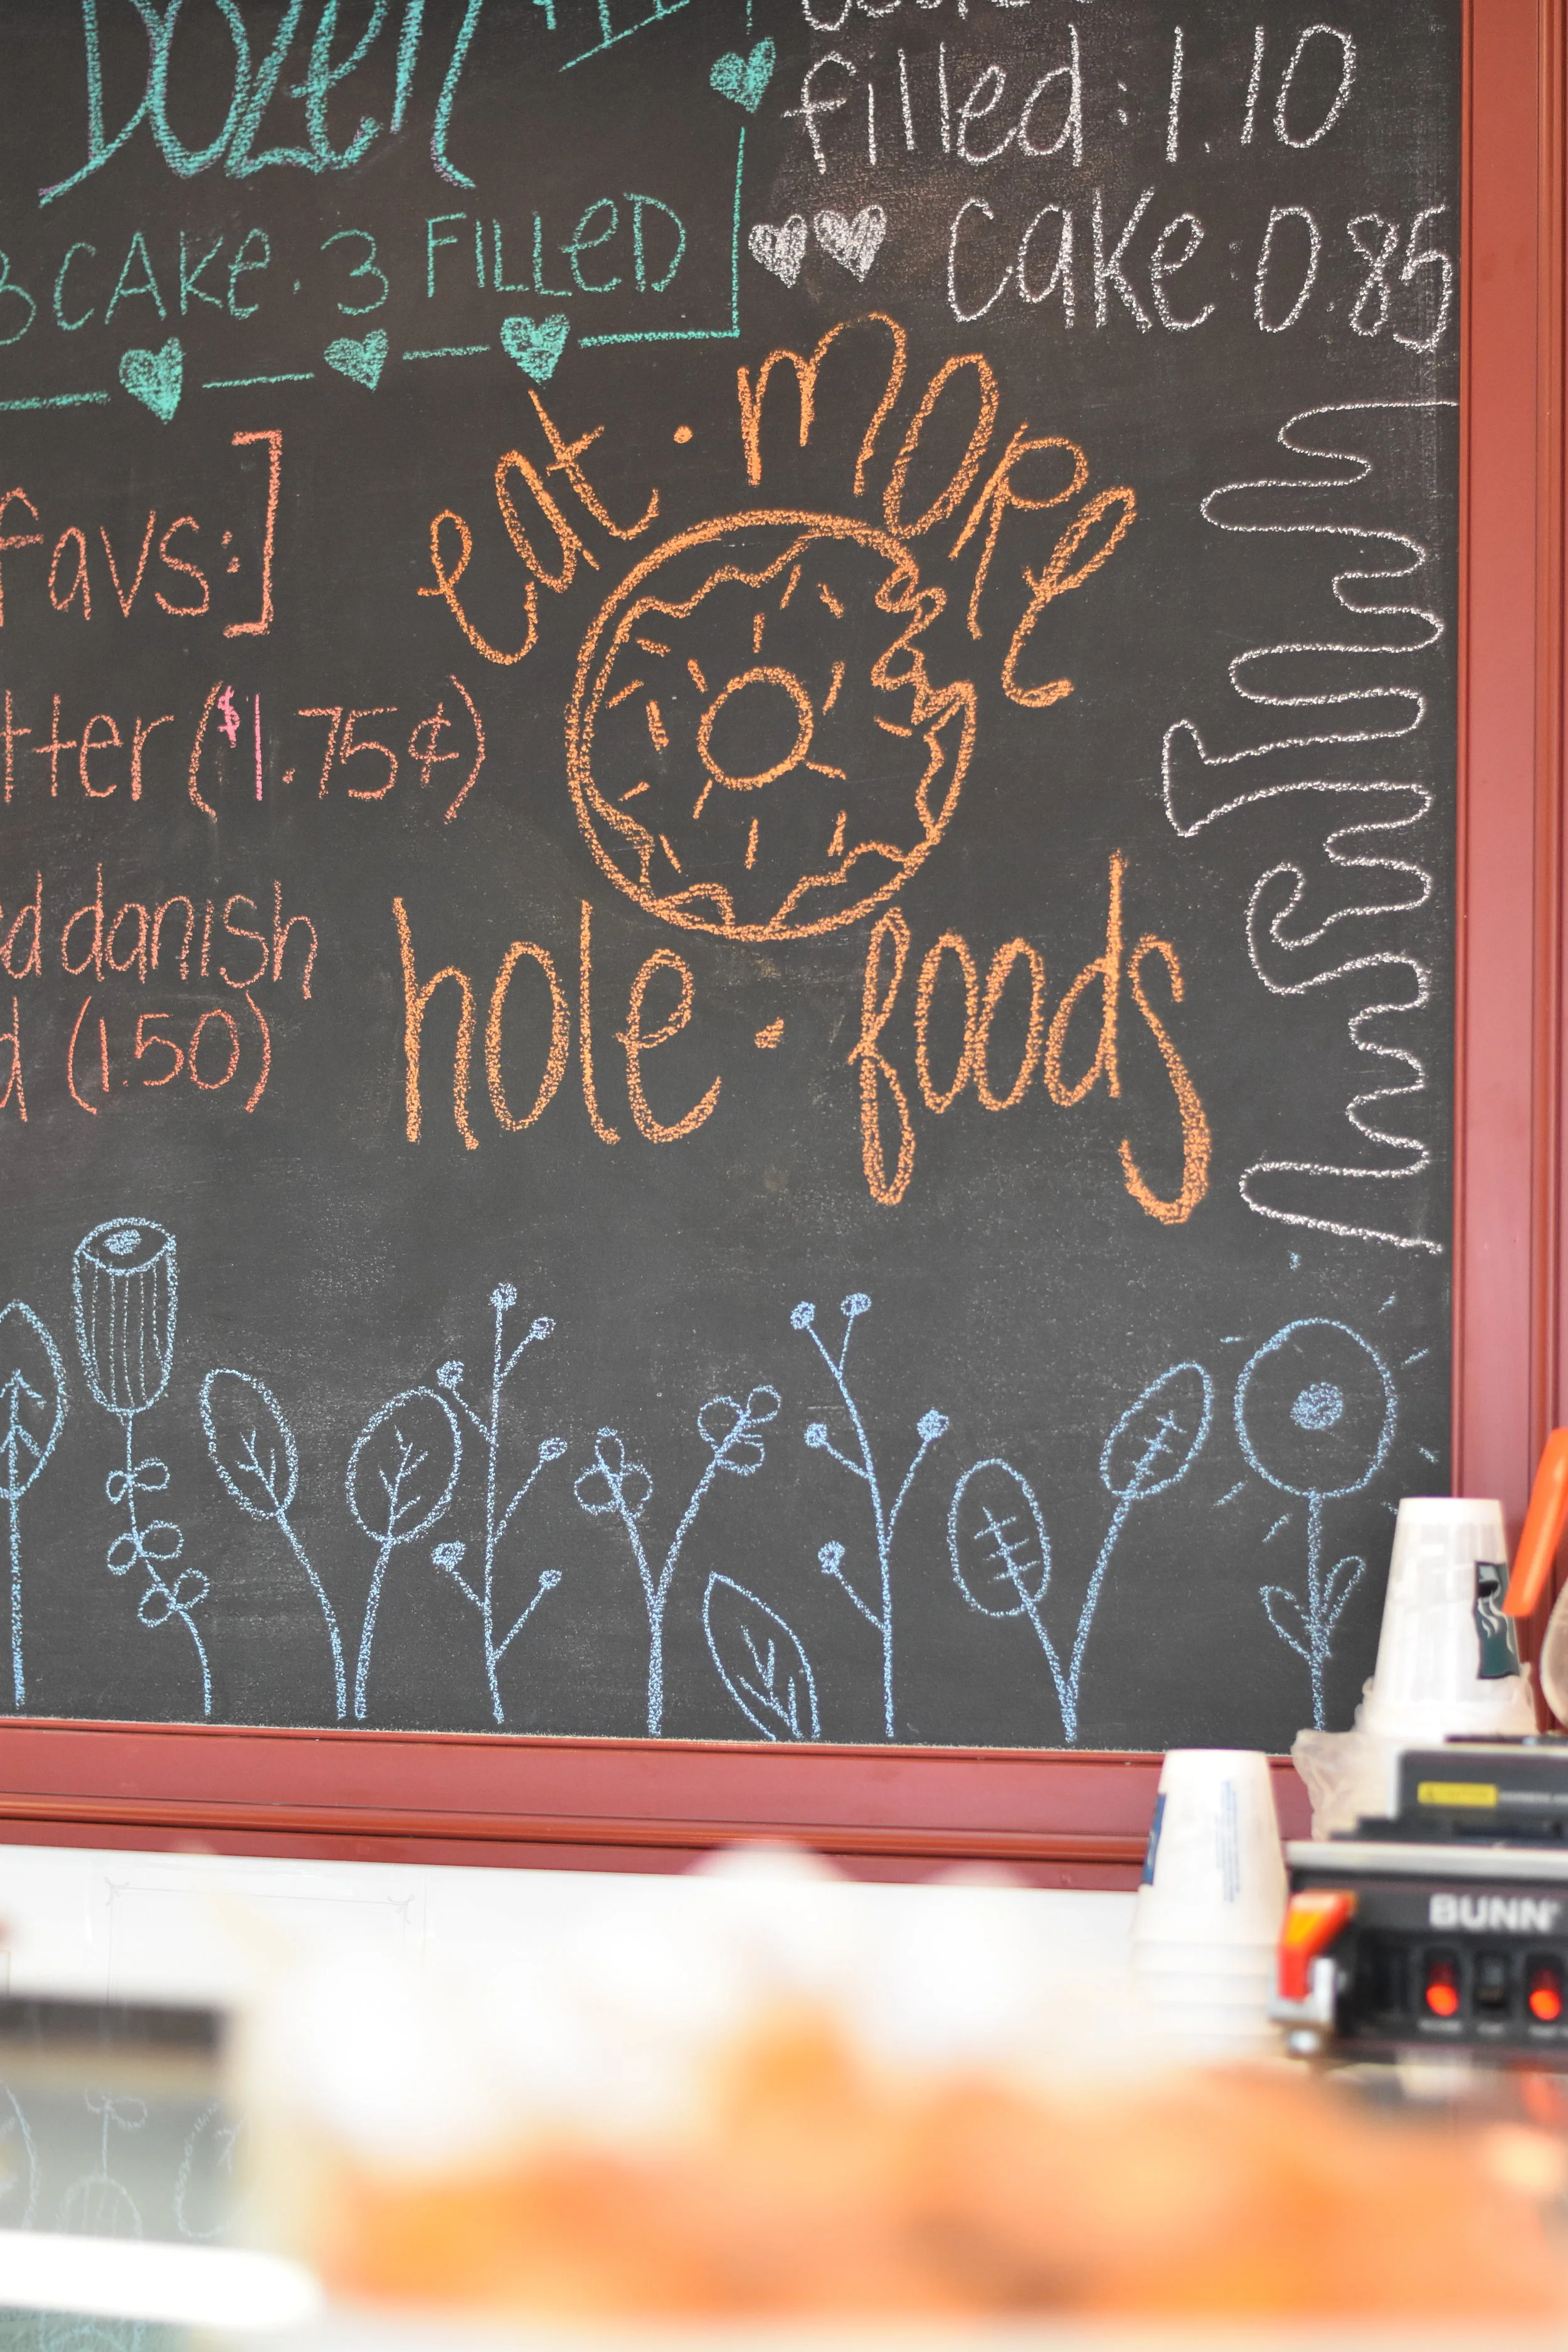 DOZEN
filled: 1.10
CAKE · 3 FILLED
cake: 0.85
favs:]
($1.75¢)
danish
(1.50)
eat · more
hole · foods
BUNN